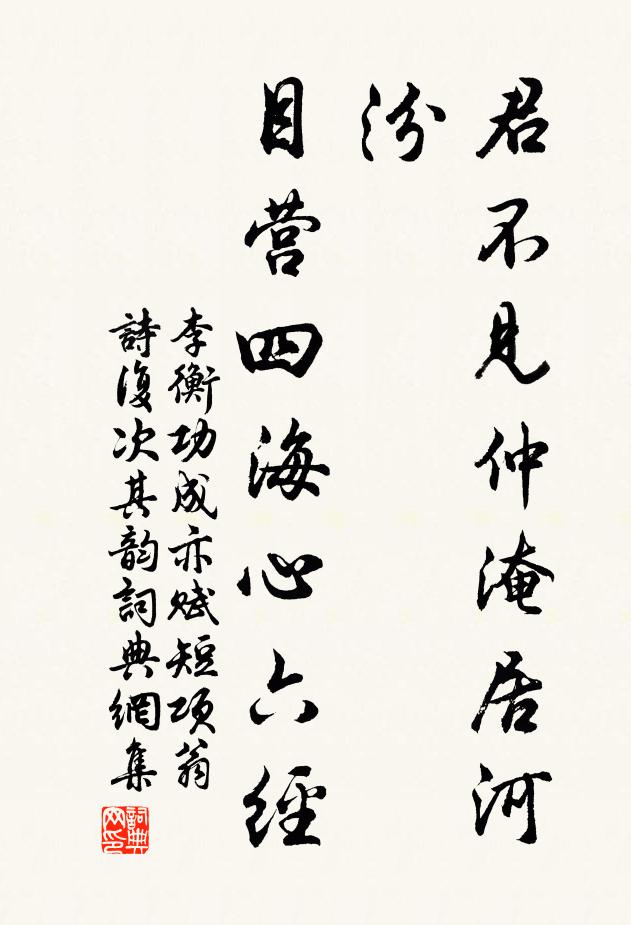 君不見仲淹居河
汾
目营四海心六經
李衡功成亦賦短项翁
詩復次其韵詞典網集
詞典网印